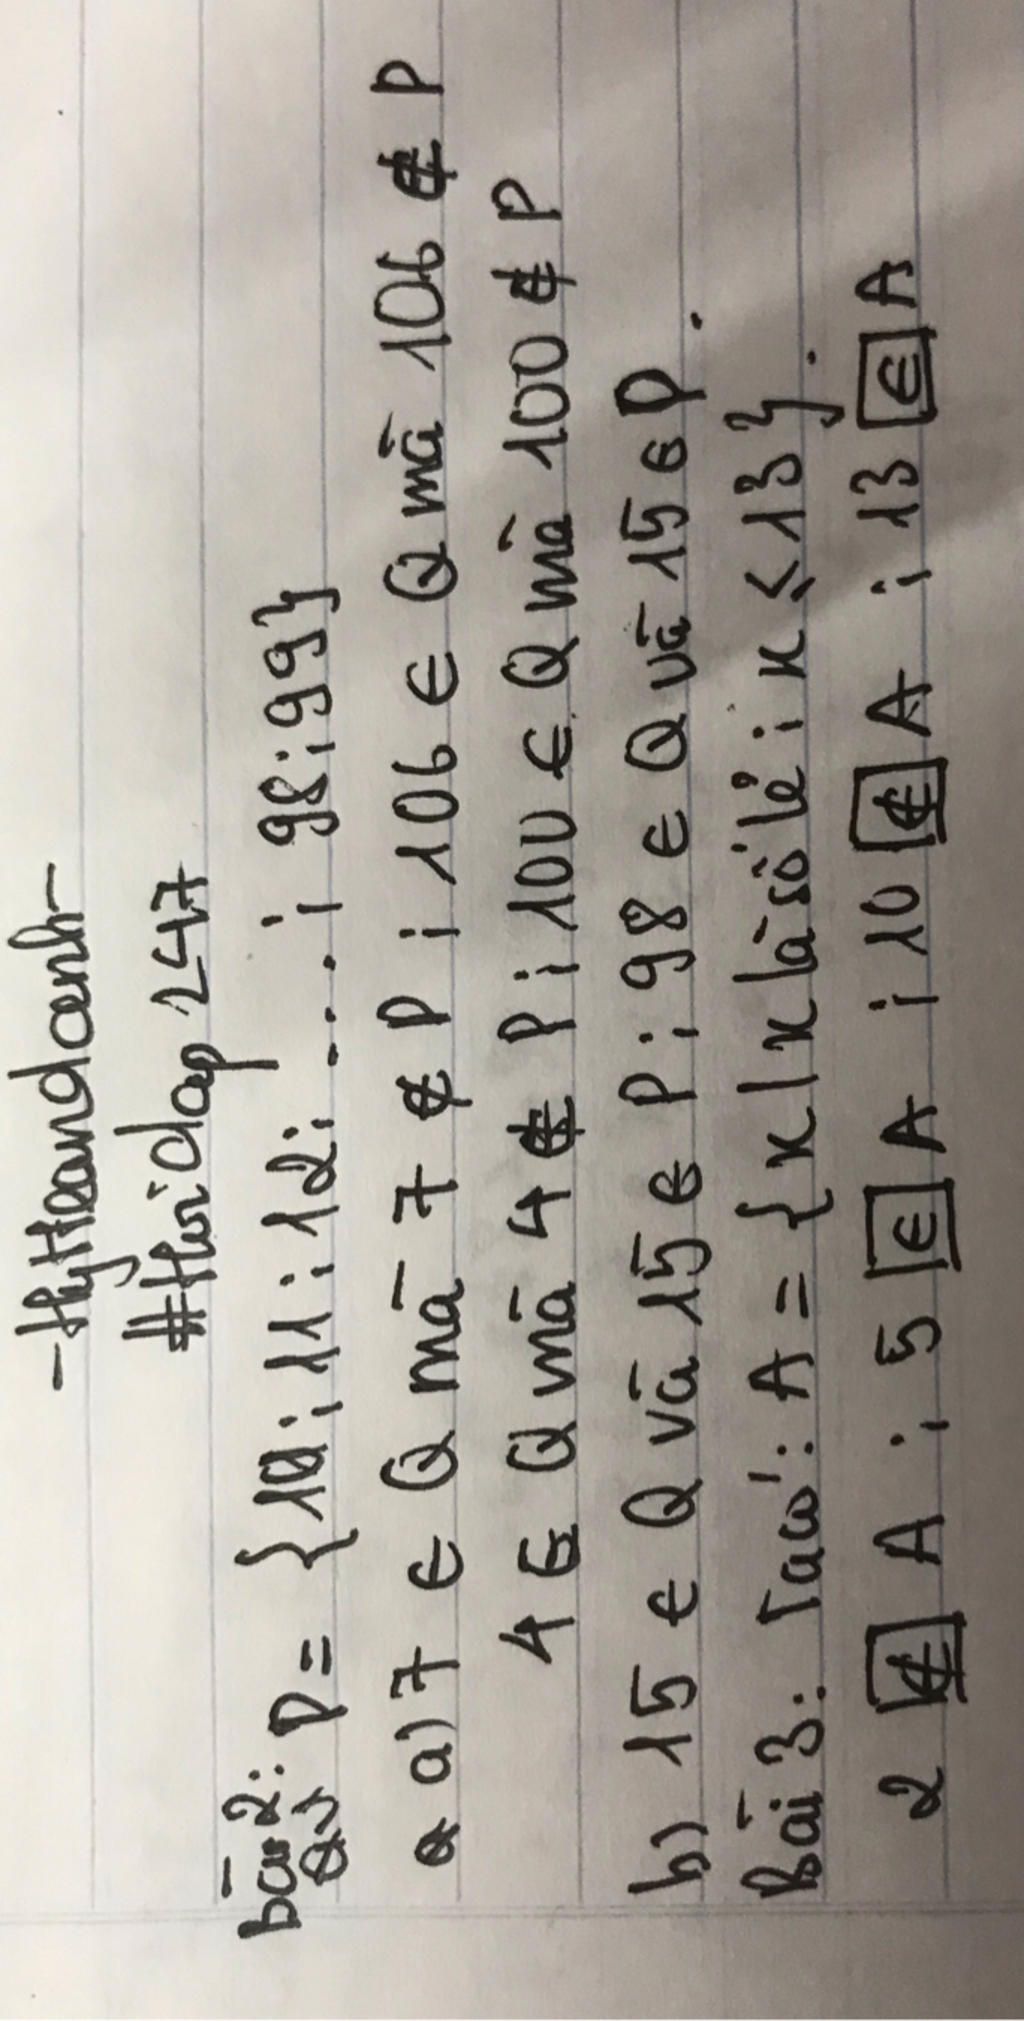 -thyttrandoanh-
#Hoidap247
bài 2: P = {10; 11; 12; ...; 98; 99}
a) 7 ∈ Q mà 7 ∉ P ; 106 ∈ Q mà 106 ∉ P
4 ∈ Q mà 4 ∉ P ; 100 ∈ Q mà 100 ∉ P
b) 15 ∈ Q và 15 ∈ P ; 98 ∈ Q và 15 ∈ P.
Bài 3: Ta có: A = {x | x là số lẻ ; x ≤ 13}.
2 ∉ A ; 5 ∈ A ; 10 ∉ A ; 13 ∈ A